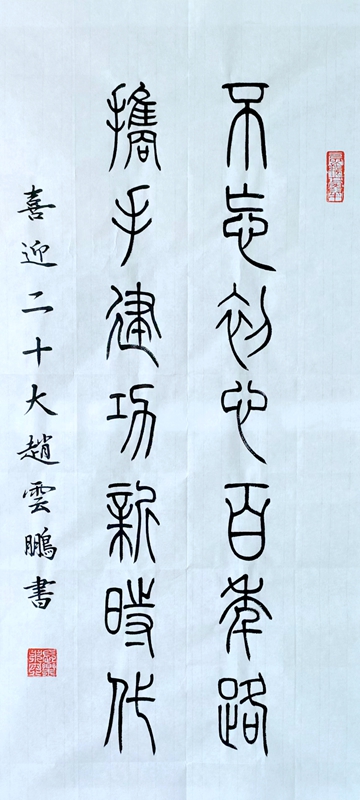 不忘初心百年路
攜手建功新時代
喜迎二十大趙雲鵬書